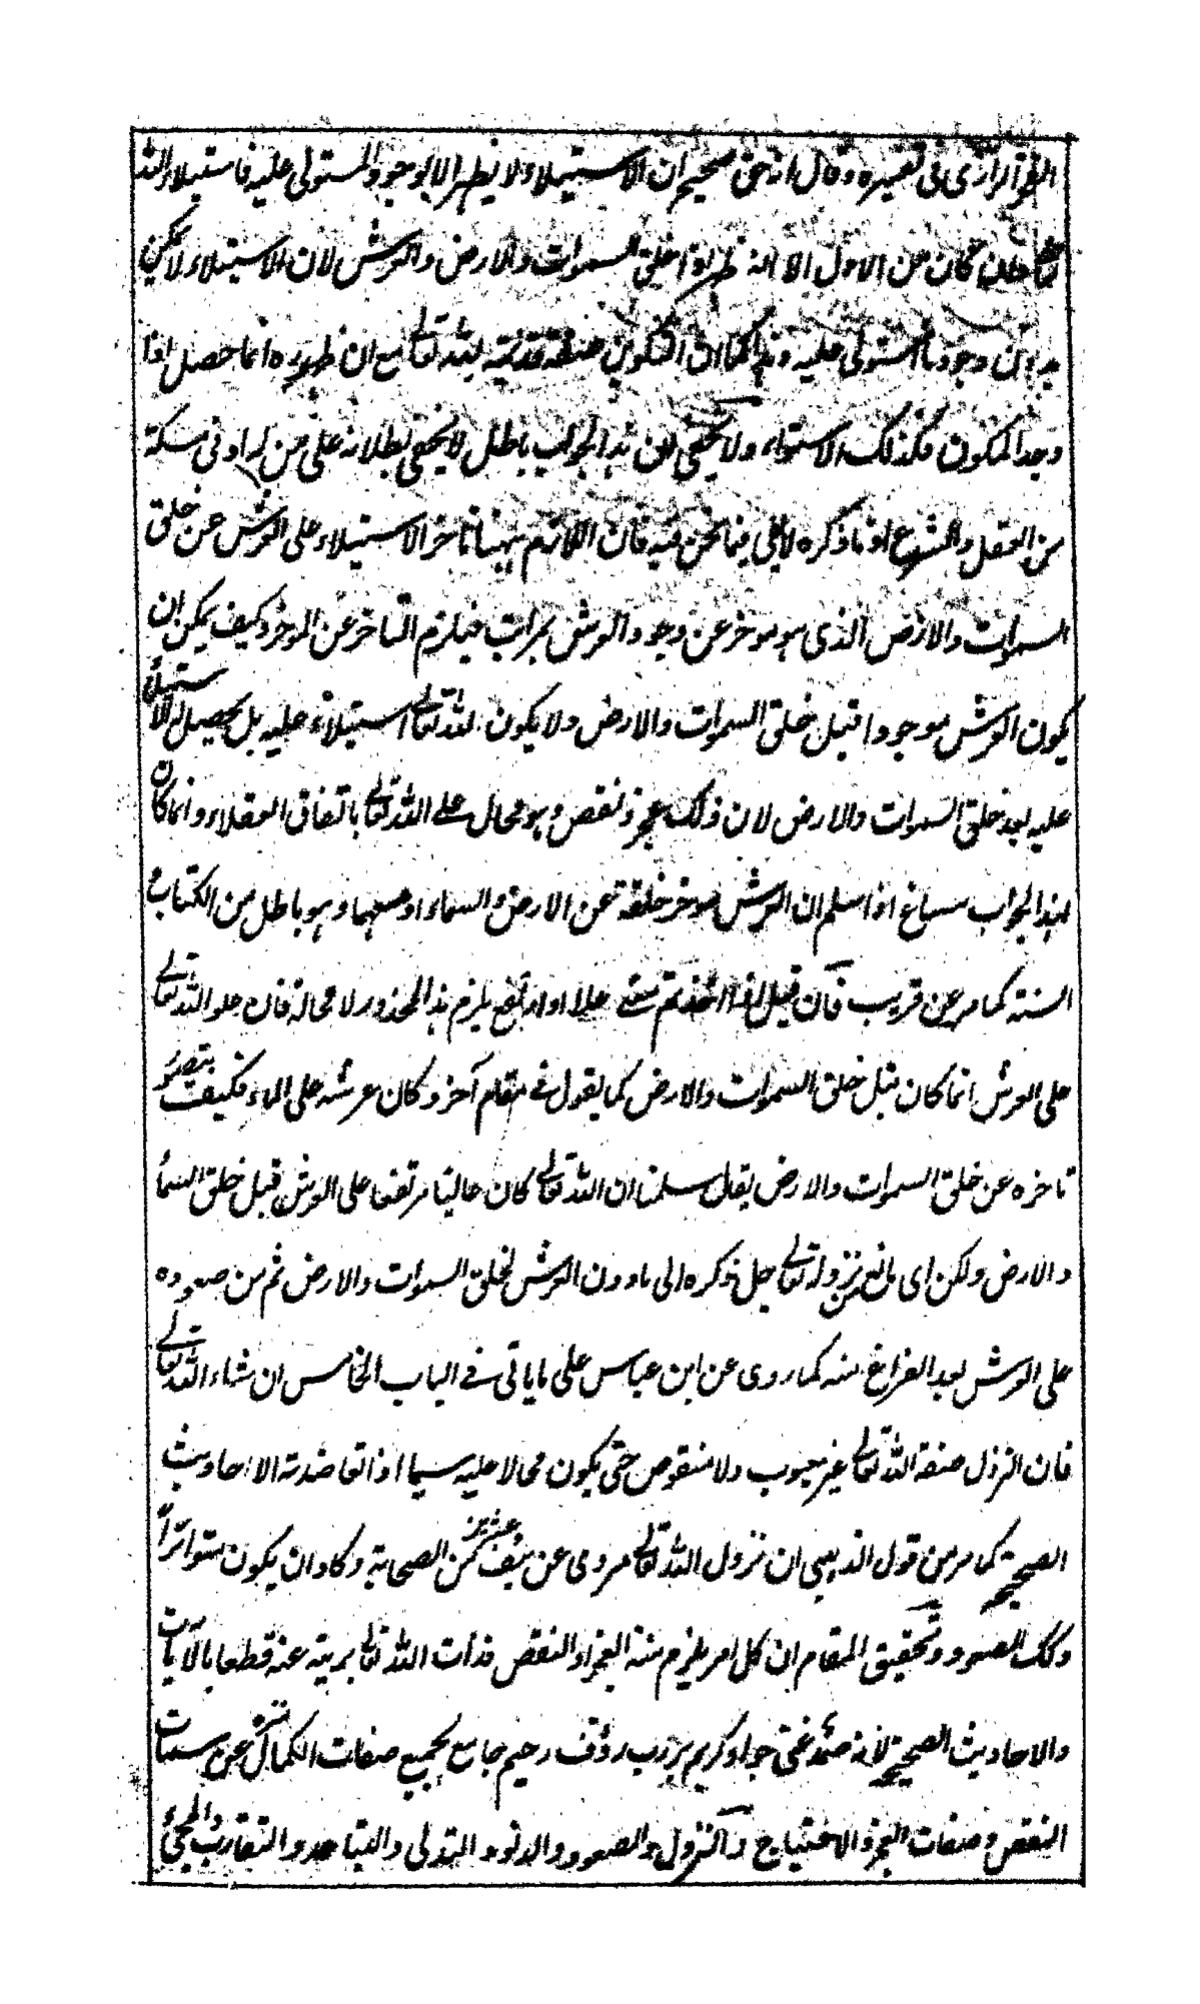 الفخر الرازي في تفسيره وقال انه حق صحيح ان الاستيلاء لا يظهر الا بوجود المستولى عليه فاستيلاء الله
تعالى وان كان من الاول الا انه ظهر اذا خلق السموات والارض والعرش لان الاستيلاء لا يمكن
بدون وجود المستولى عليه وهذا كما ان التكوين صفة قديمة لله تعالى مع ان ظهوره انما حصل اذا
وجد المكون فكذلك الاستواء ولا يخفى ان هذا الجواب باطل لا يخفى بطلانه على من له ادنى مسكة
من العقل والشرع اذ ما ذكره لا يفي فيما نحن فيه فان اللازم ههنا تاخر الاستيلاء على العرش عن خلق
السموات والارض الذى هو موخر عن وجود العرش بمراتب فيلزم التاخر عن الموخر وكيف يمكن ان
يكون العرش موجودا قبل خلق السموات والارض ولا يكون لله تعالى استيلاء عليه بل يحصل له الاستيلاء
عليه بعد خلق السموات والارض لان ذلك عجز ونقص وهو محال على الله تعالى باتفاق العقلاء وانما كان
لهذا الجواب مساغ اذا سلم ان العرش موخر خلقة عن الارض والسماء او معهما وهو باطل من الكتاب و
السنة كما مر عن قريب فان قيل اذا اخذتم معنى علا او ارتفع يلزم هذا المحذور لا محالة فان علو الله تعالى
على العرش انما كان قبل خلق السموات والارض كما يقول في مقام آخر وكان عرشه على الماء فكيف يتصور
تاخره عن خلق السموات والارض يقال سلمنا ان الله تعالى كان عاليا مرتفعا على العرش قبل خلق السماء
والارض ولكن اى مانع من نزوله تعالى جل ذكره الى ما دون العرش لخلق السموات والارض ثم من صعوده
على العرش بعد الفراغ منه كما روى عن ابن عباس على ما ياتي في الباب الخامس ان شاء الله تعالى
فان النزول صفة الله تعالى غير معيوب ولا منقوص حتى يكون محالا عليه سيما اذا تعاضدته الاحاديث
الصحيحة كما مر من قول الذهبي ان نزول الله تعالى مروى عن نيف عشرين من الصحابة وكاد ان يكون متواترا
وكذلك الصعود وتحقيق المقام ان كل امر يلزم منه العجز او النقص فذات الله تعالى برية عنه قطعا بالآيات
والاحاديث الصحيحة لانه صمد غنى جواد كريم بر رب رؤف رحيم جامع لجميع صفات الكمال منزه عن سمات
النقص وصفات العجز والاحتياج والنزول والصعود والدنو والتدلى والتباعد والتقارب والمجئ